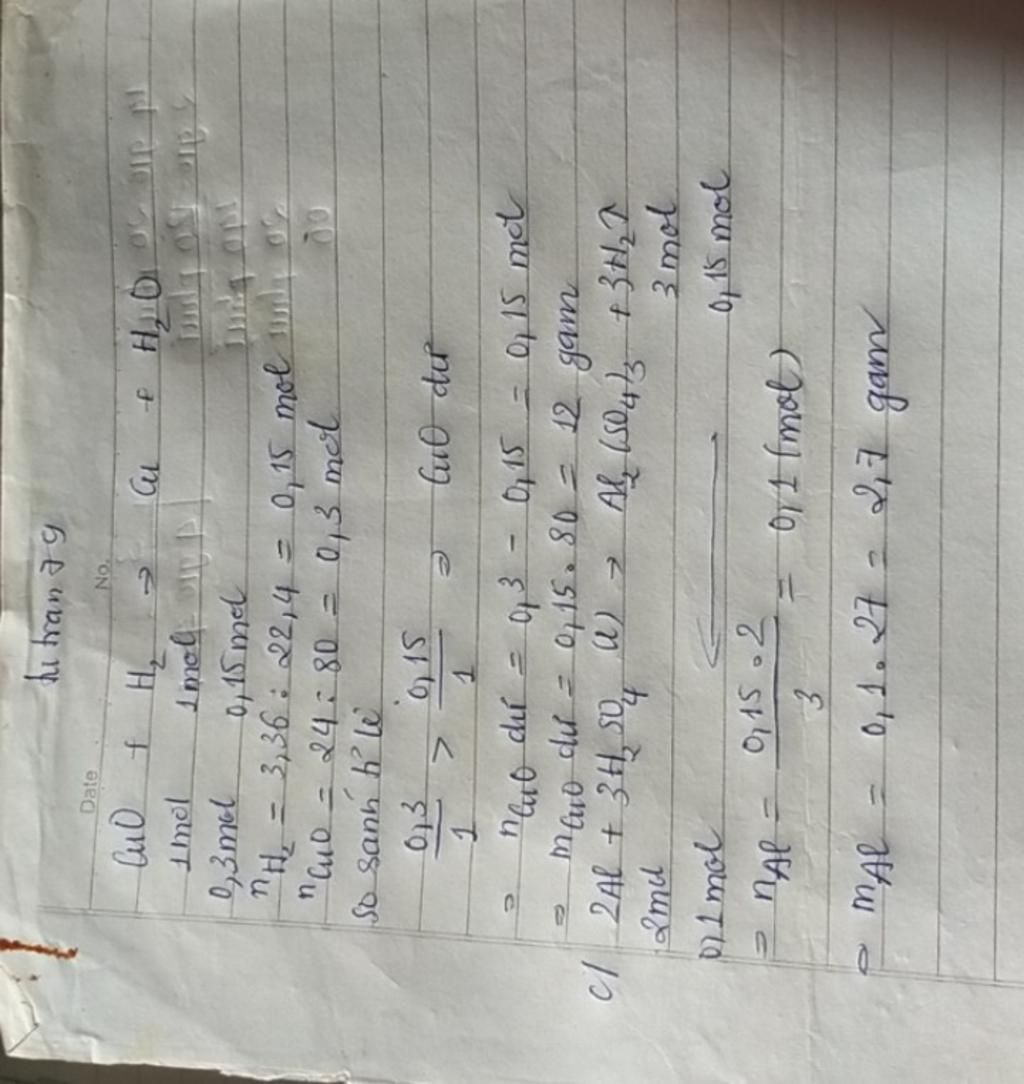 No.
Date
CuO + H2 → Cu + H2O
1mol 1mol
0,3mol 0,15mol
nH2 = 3,36 : 22,4 = 0,15 mol
nCuO = 24 : 80 = 0,3 mol
so sánh tỉ lệ
0,3/1 > 0,15/1 ⇒ CuO dư
⇒ nCuO dư = 0,3 - 0,15 = 0,15 mol
⇒ mCuO dư = 0,15.80 = 12 gam
c/ 2Al + 3H2SO4 (l) → Al2(SO4)3 + 3H2↑
2mol 3mol
0,1mol ← 0,15 mol
⇒ nAl = 0,15.2/3 = 0,1 (mol)
⇒ mAl = 0,1.27 = 2,7 gam